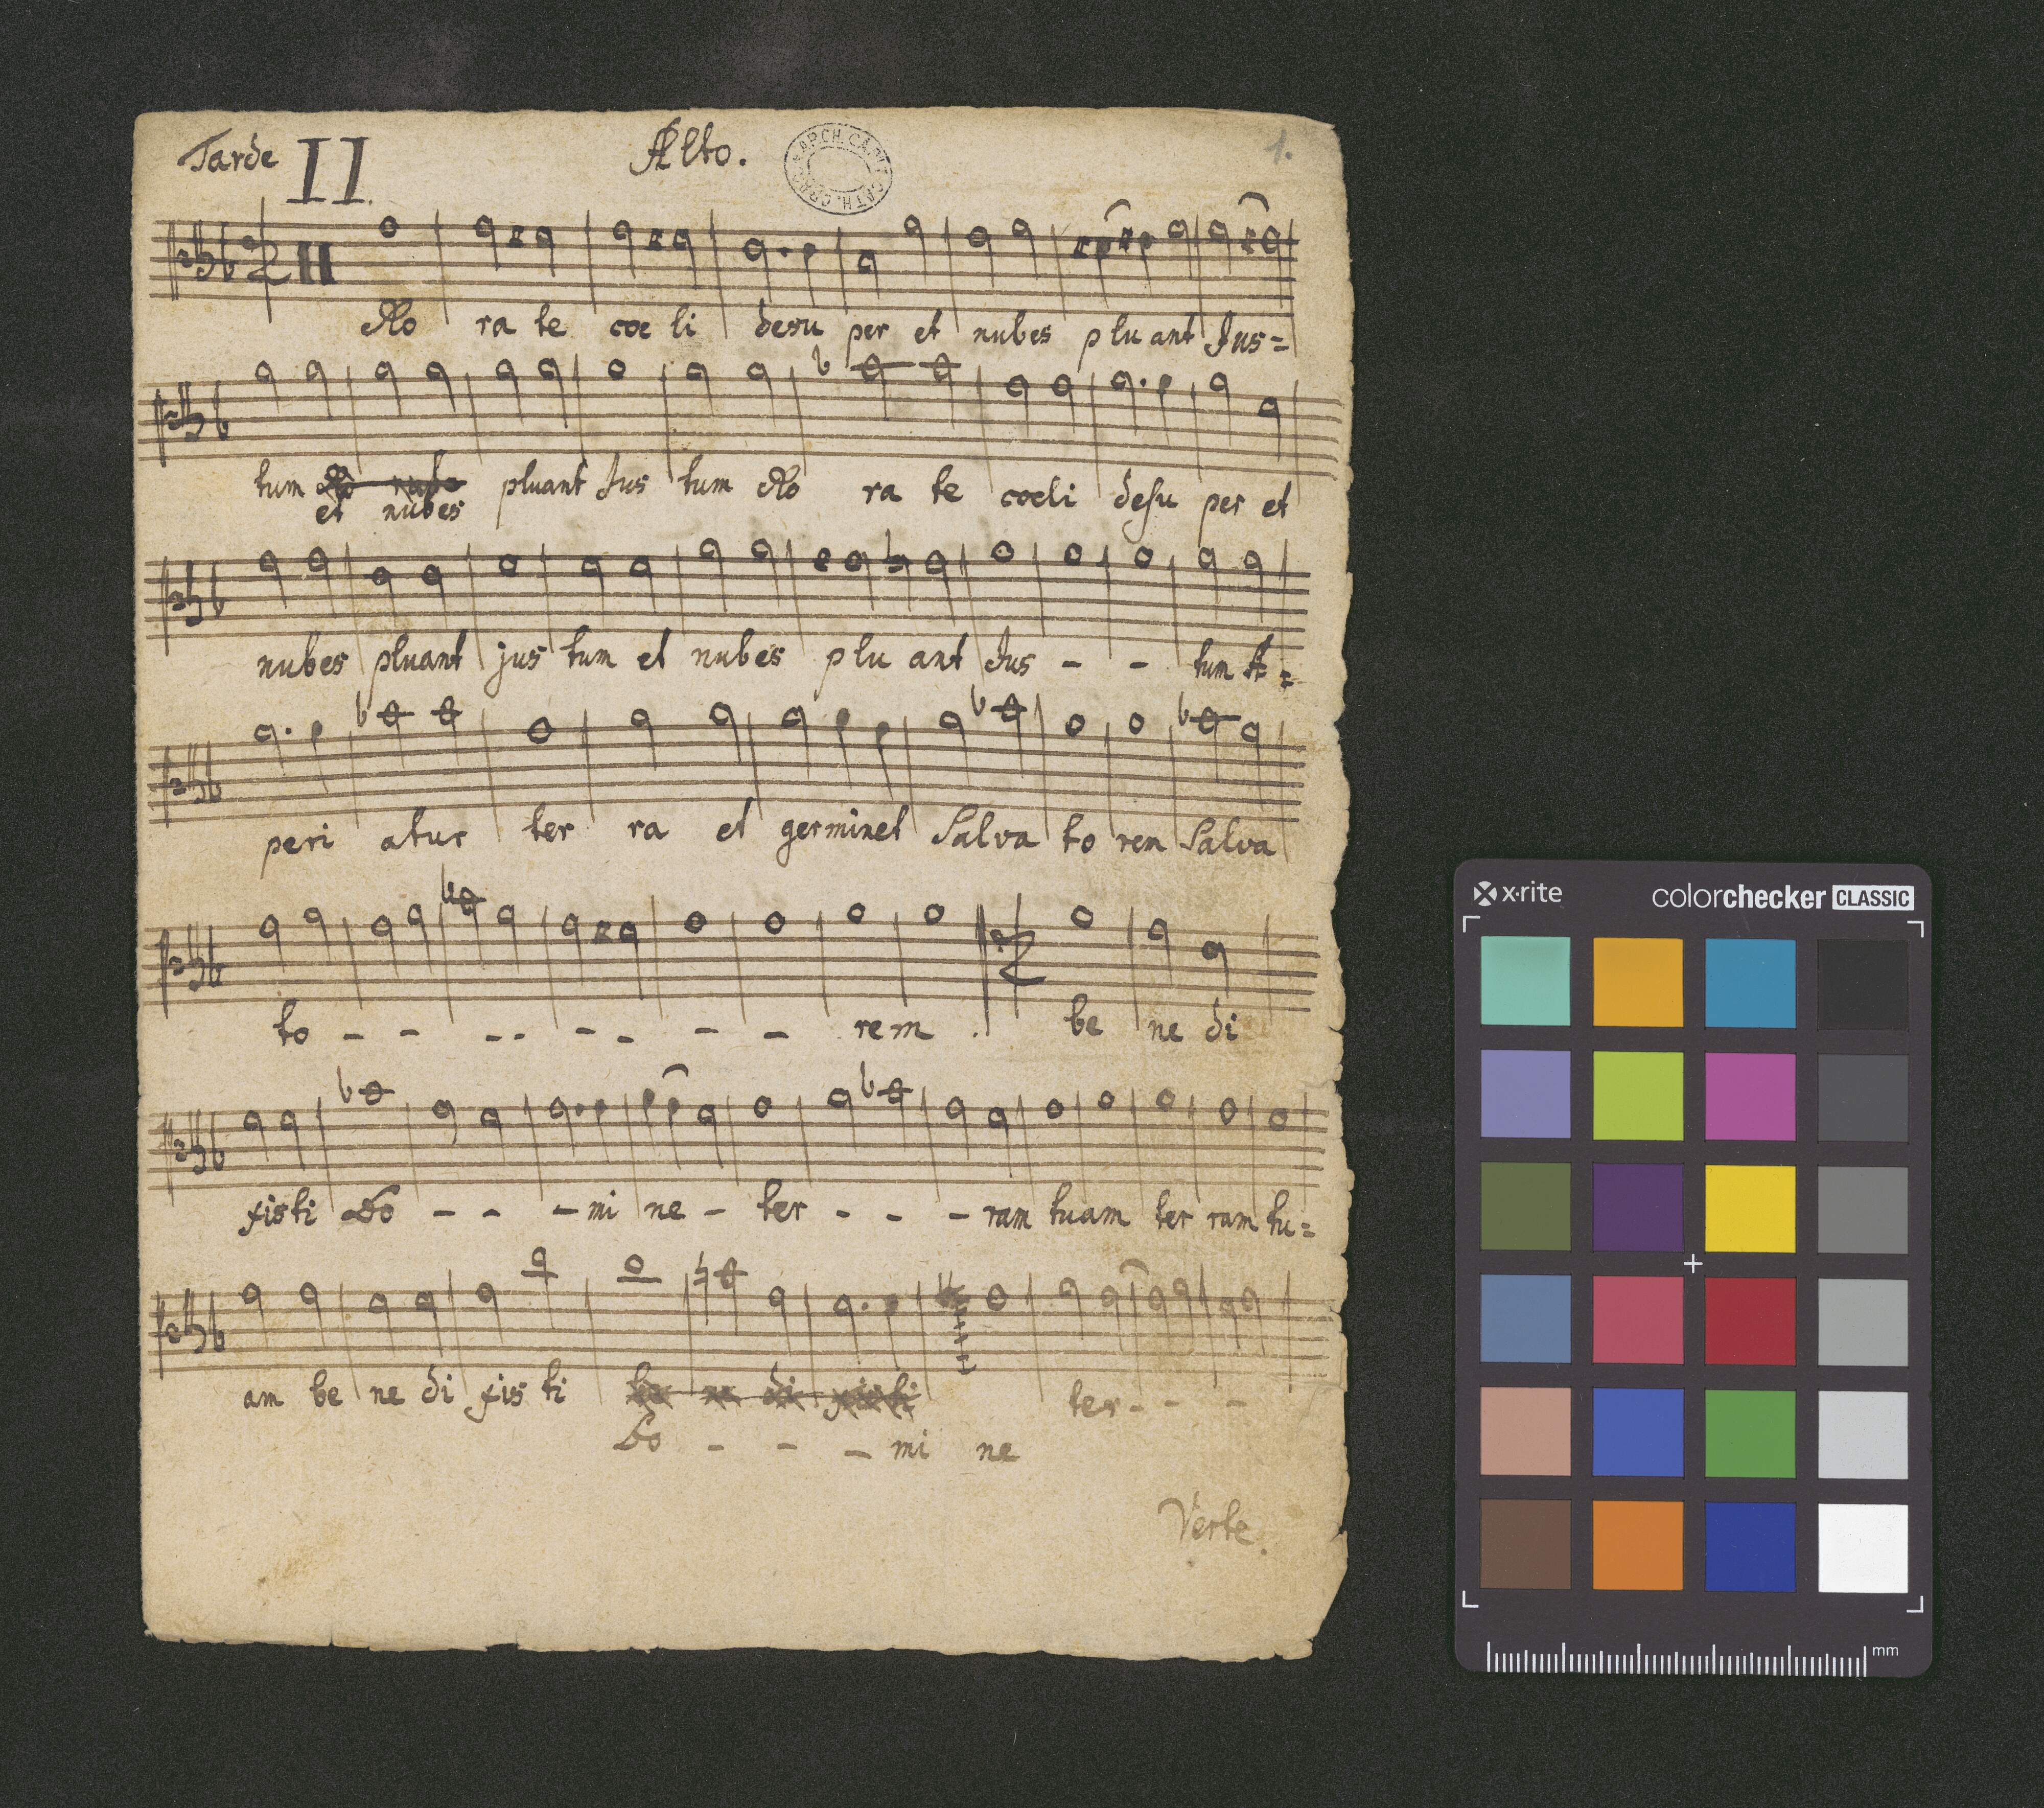 Tarde II Alto. 1.
Ro ra te coe li desu per et nubes plu ant Jus=
tum pluant Jus tum Ro ra te coeli desu per et
et nubes
nubes pluant jus tum et nubes plu ant Jus - - tum A=
peri atur ter ra et germinet Salva to rem Salva
to - - - - - - - - rem. be ne di
xisti Do - - - mi ne - ter - - - ram tuam ter ram tu=
am be ne di xis ti be ne di xisti ter - - -
Do - - - mi ne
Verte.
x·rite colorchecker CLASSIC
mm